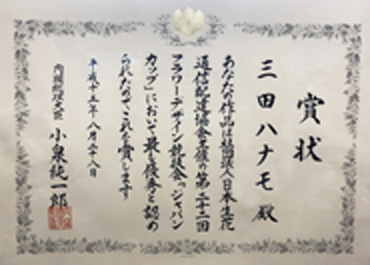 賞状
三田ハナモ殿
あなたの作品は社団法人日本生花
通信配達協会主催の第二十二回
フラワーデザイン競技会「ジャパン
カップ」において最も優秀と認め
られたのでこれを賞します
平成十五年八月二十八日
内閣総理大臣 小泉純一郎